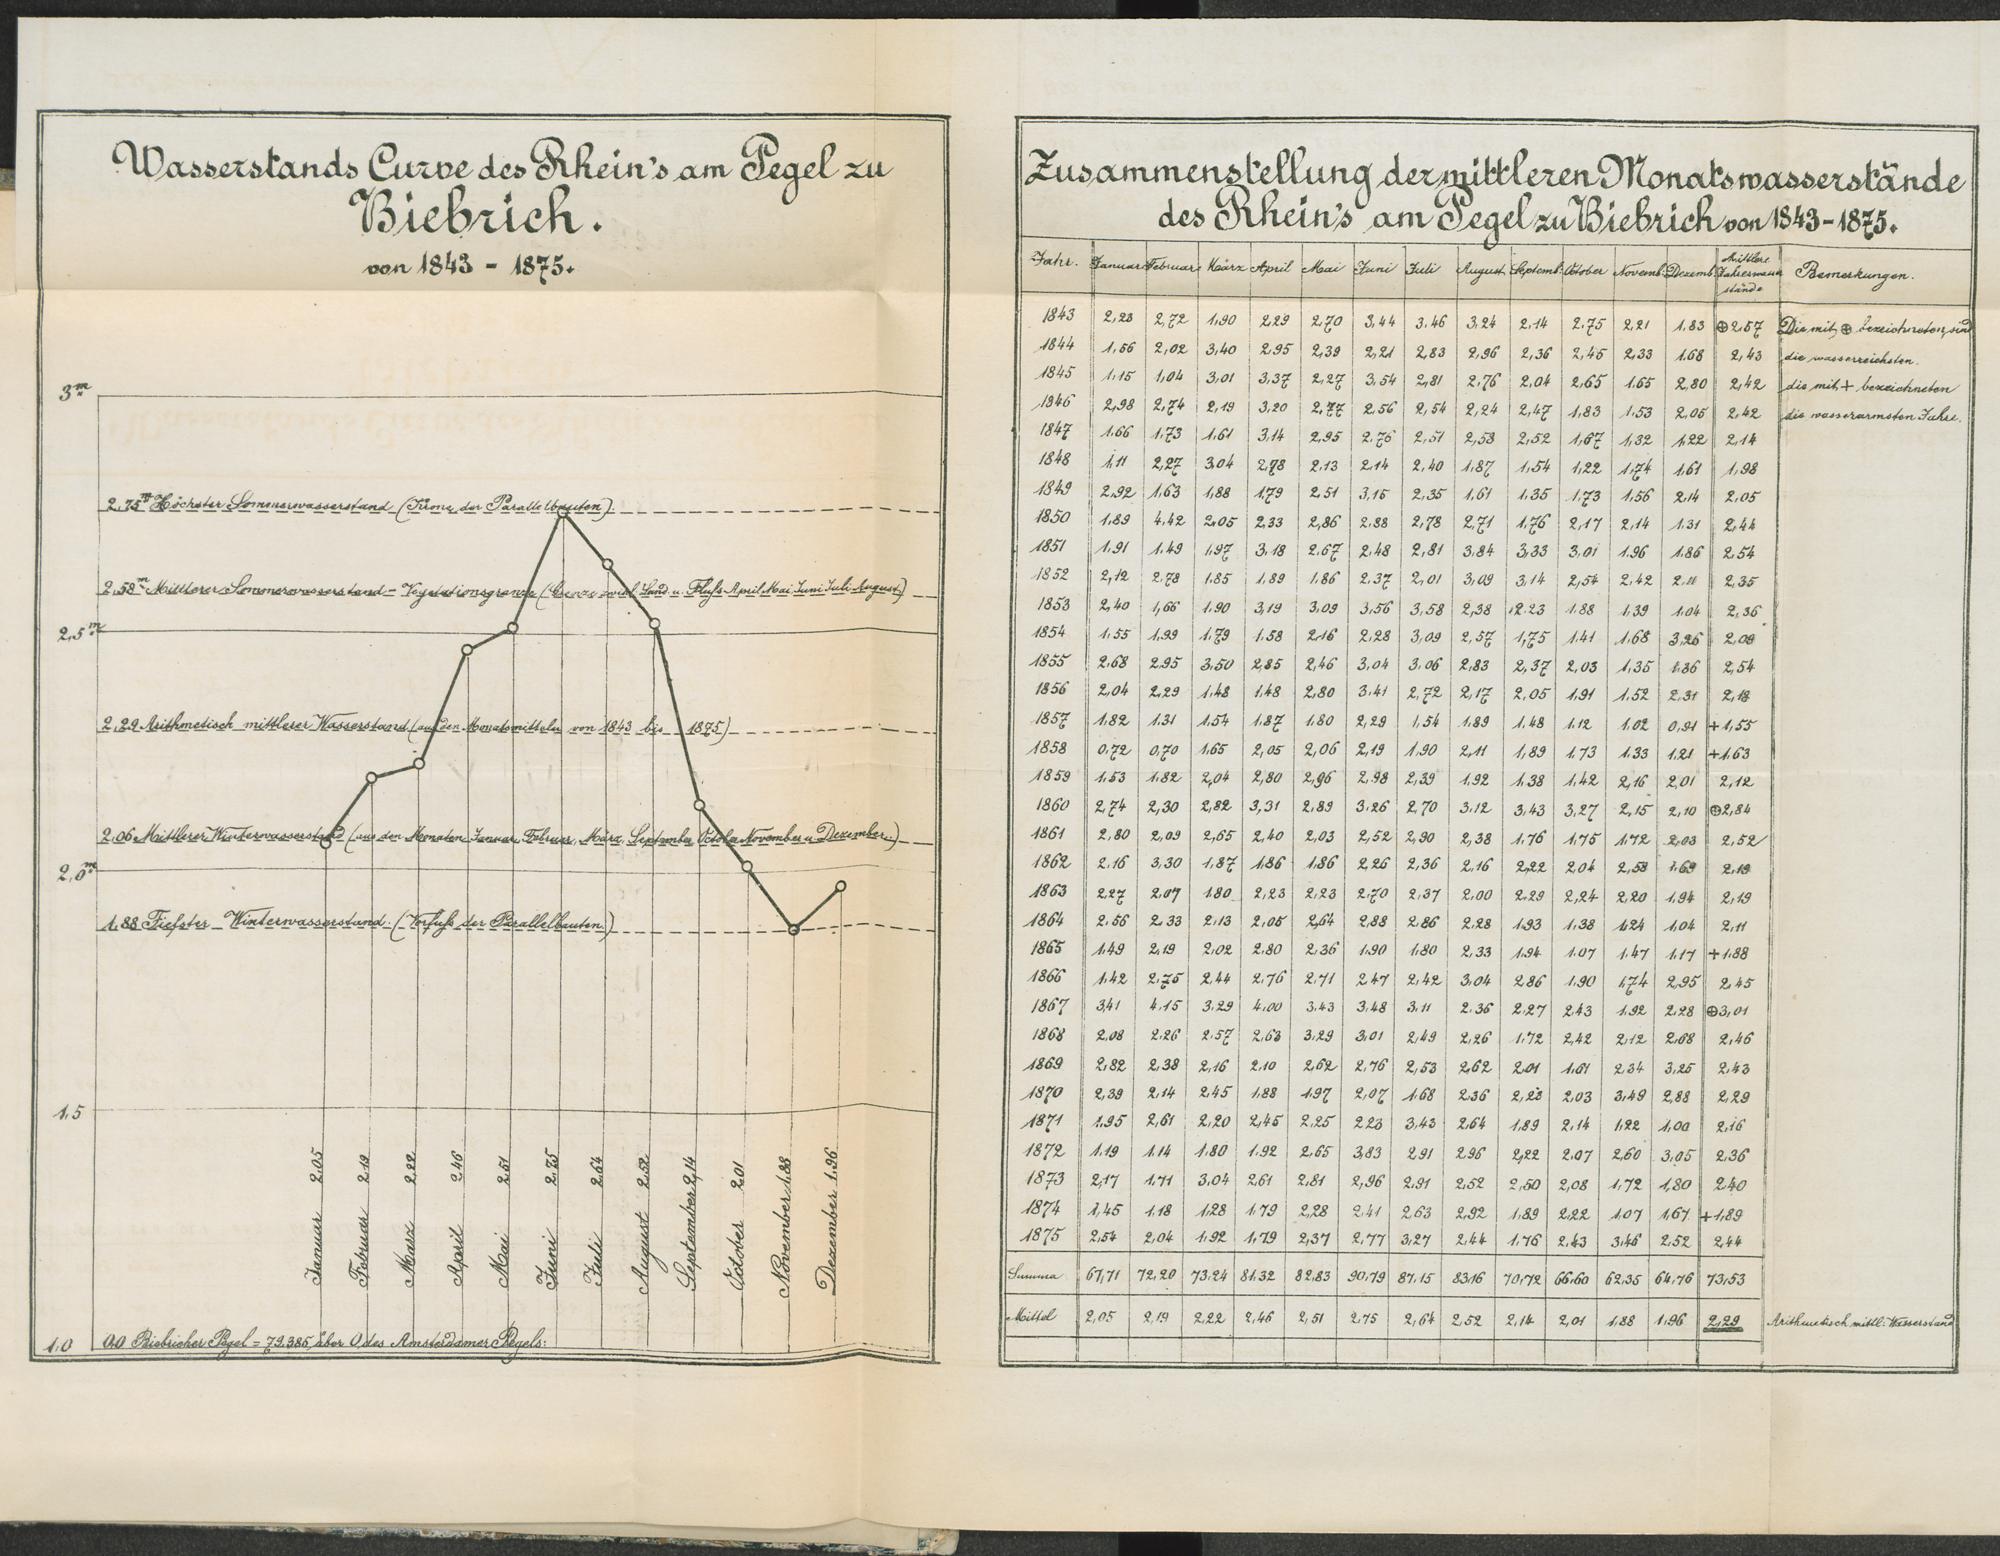 Wasserstands Curve des Rhein's am Pegel zu
Biebrich.
von 1843 - 1875.
3m
2,75m Höchster Sommerwasserstand (Krone der Parallelbauten)
2,58m Mittlerer Sommerwasserstand - Vegetationsgrenze (Grenze zwisch. Land u. Fluss April, Mai Juni Juli August)
2,5m
2,29 Arithmetisch mittlerer Wasserstand (aus den Monatsmitteln von 1843 bis 1875)
2,06 Mittlerer Winterwasserstand (aus den Monaten Januar, Februar, März, September October November u Dezember.)
2,0m
1,88 Tiefster Winterwasserstand. (Vorfuss der Parallelbauten.)
1,5
Januar 2,05
Februar 2,19
Maerz 2,22
April 2,46
Mai 2,51
Juni 2,75
Juli 2,64
August 2,52
September 2,14
October 2,01
November 1,88
Dezember 1,96
1,0 0,0 Biebricher Pegel = 79,385 über 0, des Amsterdamer Pegels.
Zusammenstellung der mittleren Monatswasserstände
des Rhein's am Pegel zu Biebrich von 1843-1875.
Jahr. Januar Februar März April Mai Juni Juli August Septemb. October Novemb. Dezemb. Mittlere Jahreswasserstände Bemerkungen.
1843 2,23 2,72 1,90 2,29 2,70 3,44 3,46 3,24 2,14 2,75 2,21 1,83 ⊕2,57 Die mit ⊕ bezeichneten, sind
1844 1,56 2,02 3,40 2,95 2,39 2,21 2,83 2,96 2,36 2,45 2,33 1,68 2,43 die wasserreichsten.
1845 1,15 1,04 3,01 3,37 2,27 3,54 2,81 2,76 2,04 2,65 1,65 2,80 2,42 die mit + bezeichneten
1846 2,98 2,74 2,19 3,20 2,77 2,56 2,54 2,24 2,47 1,83 1,53 2,05 2,42 die wasserarmsten Jahre.
1847 1,66 1,73 1,61 3,14 2,95 2,76 2,51 2,58 2,52 1,67 1,32 1,22 2,14
1848 1,11 2,27 3,04 2,78 2,13 2,14 2,40 1,87 1,54 1,22 1,74 1,61 1,98
1849 2,92 1,63 1,88 1,79 2,51 3,15 2,35 1,61 1,35 1,73 1,56 2,14 2,05
1850 1,89 4,42 2,05 2,33 2,86 2,88 2,78 2,71 1,76 2,17 2,14 1,31 2,44
1851 1,91 1,49 1,97 3,18 2,67 2,48 2,81 3,84 3,33 3,01 1,96 1,86 2,54
1852 2,12 2,78 1,85 1,89 1,86 2,37 2,01 3,09 3,14 2,54 2,42 2,11 2,35
1853 2,40 1,66 1,90 3,19 3,09 3,56 3,58 2,38 2,23 1,88 1,39 1,04 2,36
1854 1,55 1,99 1,79 1,58 2,16 2,28 3,09 2,57 1,75 1,41 1,68 3,26 2,09
1855 2,68 2,95 3,50 2,85 2,46 3,04 3,06 2,83 2,37 2,03 1,35 1,36 2,54
1856 2,04 2,29 1,48 1,48 2,80 3,41 2,72 2,17 2,05 1,91 1,52 2,31 2,18
1857 1,82 1,31 1,54 1,87 1,80 2,29 1,54 1,89 1,48 1,12 1,02 0,91 +1,55
1858 0,72 0,70 1,65 2,05 2,06 2,19 1,90 2,11 1,89 1,73 1,33 1,21 +1,63
1859 1,53 1,82 2,04 2,80 2,96 2,98 2,39 1,92 1,38 1,42 2,16 2,01 2,12
1860 2,74 2,30 2,82 3,31 2,89 3,26 2,70 3,12 3,43 3,27 2,15 2,10 ⊕2,84
1861 2,80 2,09 2,65 2,40 2,03 2,52 2,90 2,38 1,76 1,75 1,72 2,03 2,52
1862 2,16 3,30 1,87 1,86 1,86 2,26 2,36 2,16 2,22 2,04 2,58 1,69 2,19
1863 2,27 2,07 1,80 2,23 2,23 2,70 2,37 2,00 2,29 2,24 2,20 1,94 2,19
1864 2,56 2,33 2,13 2,05 2,64 2,88 2,86 2,28 1,93 1,38 1,24 1,04 2,11
1865 1,49 2,19 2,02 2,80 2,36 1,90 1,80 2,33 1,94 1,07 1,47 1,17 +1,88
1866 1,42 2,75 2,44 2,76 2,71 2,47 2,42 3,04 2,86 1,90 1,74 2,95 2,45
1867 3,41 4,15 3,29 4,00 3,43 3,48 3,11 2,36 2,27 2,43 1,92 2,28 ⊕3,01
1868 2,08 2,26 2,57 2,63 3,29 3,01 2,49 2,26 1,72 2,42 2,12 2,68 2,46
1869 2,82 2,38 2,16 2,10 2,62 2,76 2,53 2,62 2,01 1,61 2,34 3,25 2,43
1870 2,39 2,14 2,45 1,88 1,97 2,07 1,68 2,36 2,23 2,03 3,49 2,88 2,29
1871 1,95 2,61 2,20 2,45 2,25 2,23 3,43 2,64 1,89 2,14 1,22 1,00 2,16
1872 1,19 1,14 1,80 1,92 2,65 3,83 2,91 2,96 2,22 2,07 2,60 3,05 2,36
1873 2,17 1,71 3,04 2,61 2,81 2,96 2,91 2,52 2,50 2,08 1,72 1,80 2,40
1874 1,45 1,18 1,28 1,79 2,28 2,41 2,63 2,92 1,89 2,22 1,07 1,67 +1,89
1875 2,54 2,04 1,92 1,79 2,37 2,77 3,27 2,44 1,76 2,43 3,46 2,52 2,44
Summa 67,71 72,20 73,24 81,32 82,83 90,79 87,15 83,16 70,72 66,60 62,35 64,76 73,53
Mittel 2,05 2,19 2,22 2,46 2,51 2,75 2,64 2,52 2,14 2,01 1,88 1,96 2,29 Arithmetisch mittl. Wasserstand